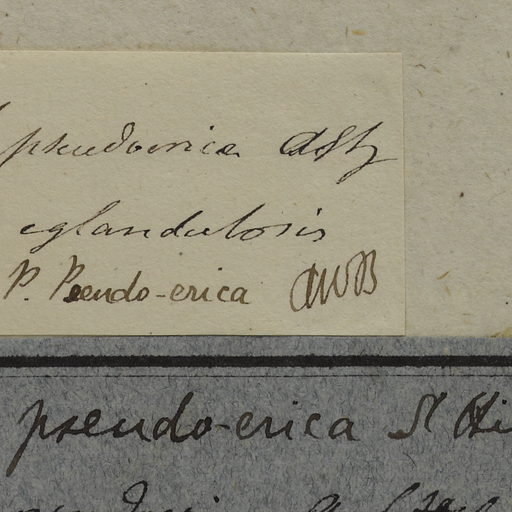 pseudoerica
eglandulosis
P. Pseudo-erica AWB
pseudo-erica St Hi